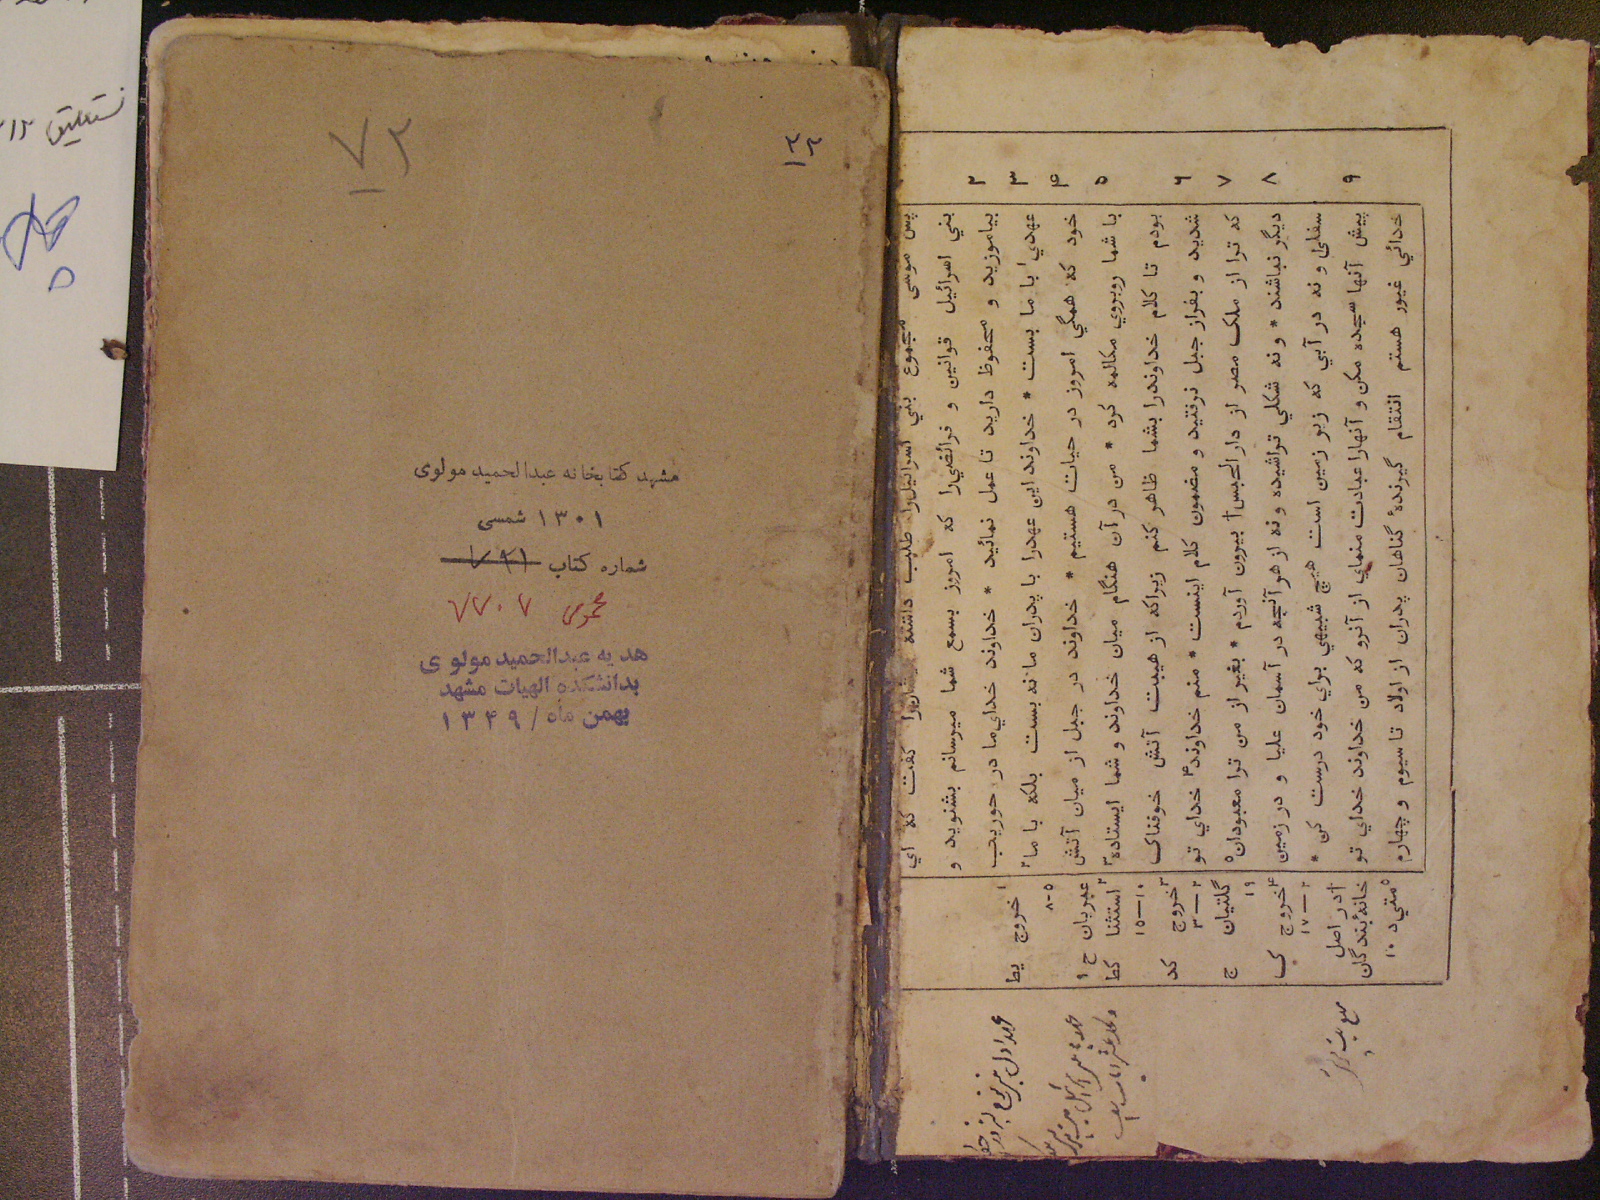 نستعلیق
مشهد کتابخانه عبدالحمید مولوی
۱۳۰۱ شمسی
شماره کتاب
عمومی ۷۷۰۷
هدیه عبدالحمید مولوی
بدانشکده الهیات مشهد
بهمن ماه / ۱۳۴۹
پس موسی مجموع بني اسرائیل‌را طلب داشته گفت که اي
بني اسرائیل قوانین و فرائضي‌را که امروز بسمع شما میرسانم بشنوید و
۲ بیاموزید و محفوظ دارید تا عمل نمائید * خداوند خداي ما در حوریب
۳ عهدي۱ با ما بست * خداوند این عهدرا با پدران ما نه بست بلکه با ما۲
۴ خود که همگي امروز در حیات هستیم * خداوند در جبل از میان آتش
۵ با شما روبروي مکالمه کرد * من در آن هنگام میان خداوند و شما ایستاده۳
بودم تا کلام خداوندرا بشما ظاهر کنم زیراکه از هیبت آتش خوفناک
۶ شدید و بفراز جبل نرفتید و مضمون کلام اینست * منم خداوند۴ خداي تو
۷ که ترا از ملک مصر از دار الحبس† بیرون آوردم * بغیر از من ترا معبودان۵
۸ دیگر نباشند * و نه شکلي تراشیده و نه از هر آنچه در آسمان علیا و در زمین
سفلیٰ و نه در آبي که زیر زمین است هیچ شبیهي براي خود درست کن *
۹ پیش آنها سجده مکن و آنهارا عبادت منماي از آنرو که من خداوند خداي تو
خدائي غیور هستم انتقام گیرندهٔ گناهان پدران از اولاد تا سیوم و چهارم
۱ خروج یط
۵-۸
عبریان ح ۹
۲ استثنا کط
۱۰—۱۵
۳ خروج کد
۲—۳
گلتیان ج
۱۹
۴ خروج ک
۲—۱۷
† در اصل
خانهٔ بندگان
۵ متي د ۱۰